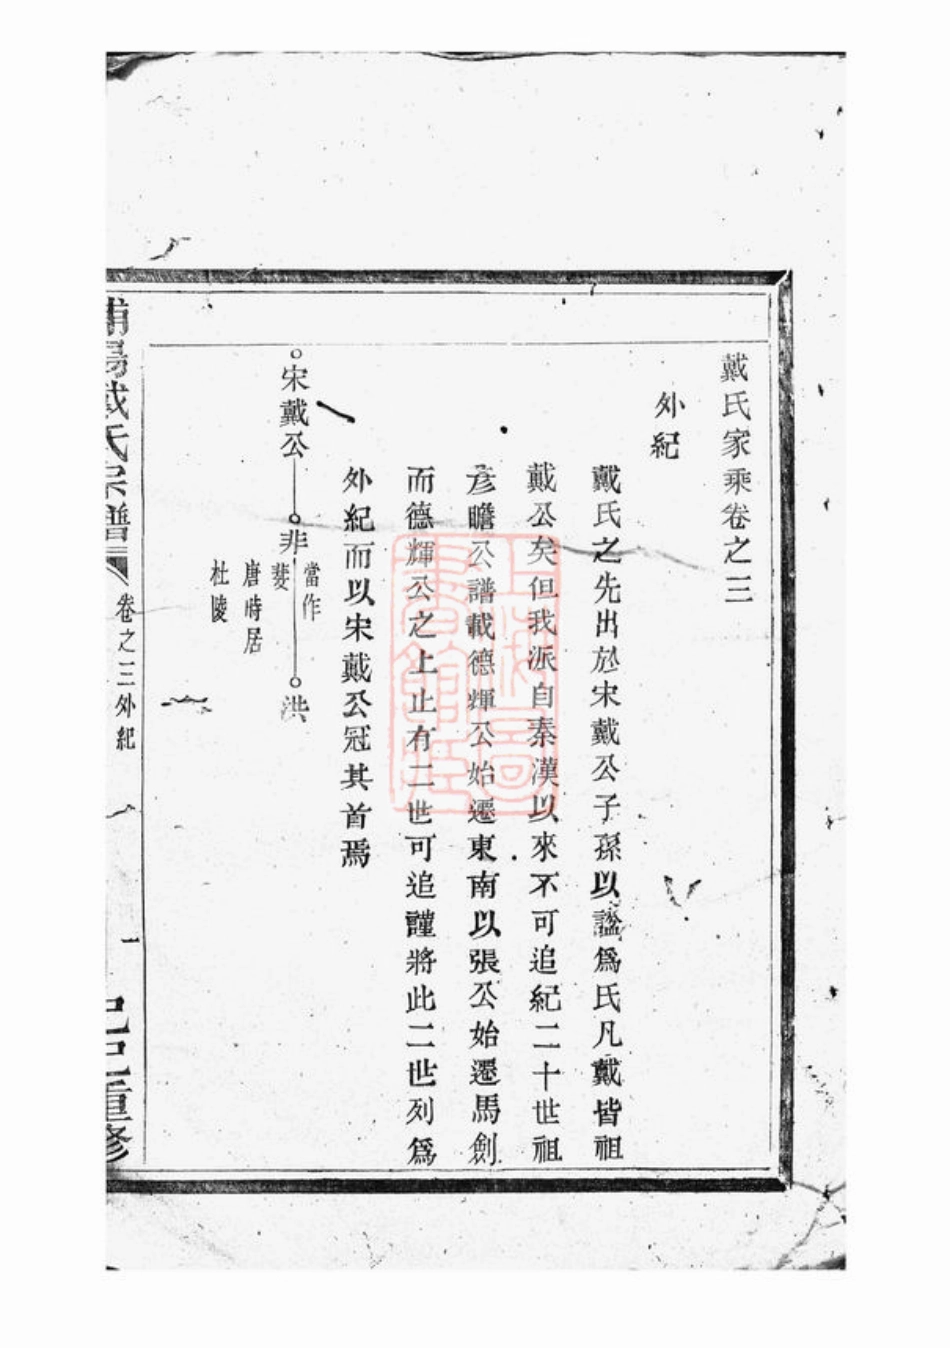 戴氏家乘卷之三
外紀
戴氏之先出於宋戴公子孫以諡爲氏凡戴皆祖
戴公矣但我派自秦漢以來不可追紀二十世祖
彥瞻公譜載德輝公始遷東南以張公始遷馬劍
而德輝公之上止有二世可追謹將此二世列爲
外紀而以宋戴公冠其首焉
宋戴公
非
當作
斐
唐時居
杜陵
洪
浦陽戴氏宗譜
卷之三外紀
一
己巳重修
上海圖書館藏